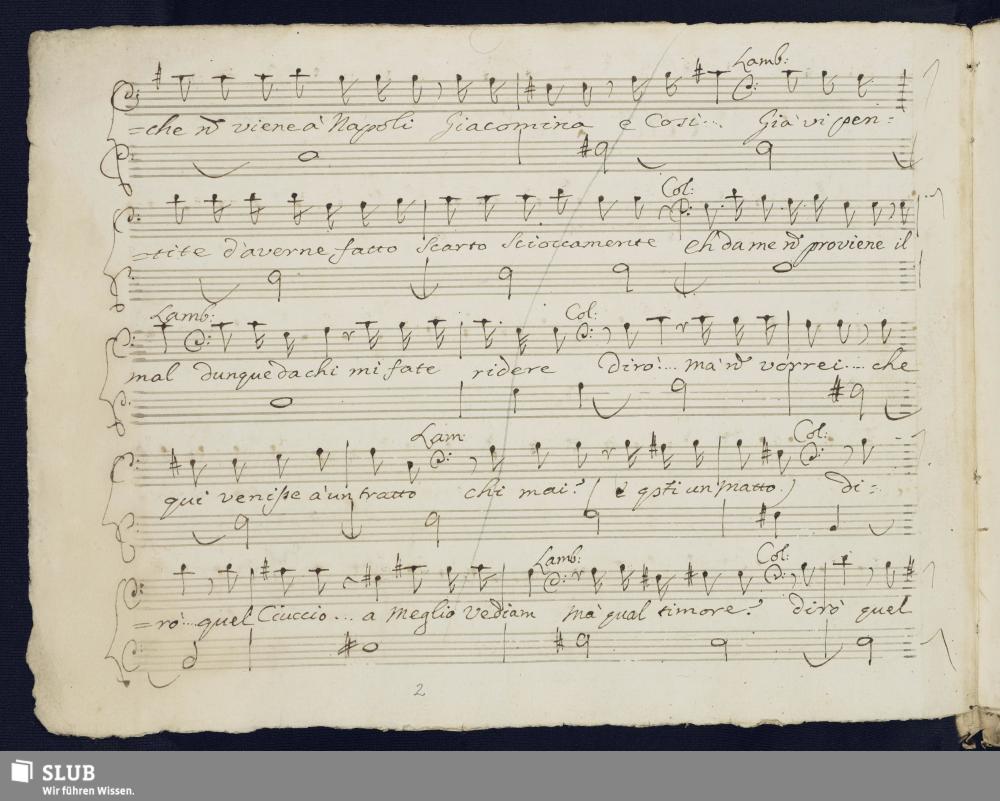 Lamb:
=che nõ viene à Napoli Giacomina e Cosi... Già vi pen:=
Col:
=tite d'averne fatto scarto scioccamente eh da me nõ proviene il
Lamb: Col:
mal dunque da chi mi fate ridere dirò.... ma nõ vorrei.... che
Lam: Col:
qui venisse à un tratto chi mai? (è qsti un matto.) di:=
Lamb: Col:
=rò... quel Ciuccio... a meglio vediam mà qual timore? dirò quel
2
SLUB
Wir führen Wissen.